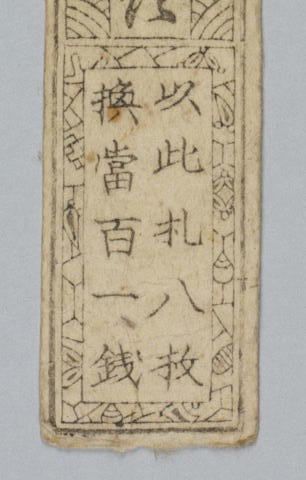 以此札八枚
換當百一銭